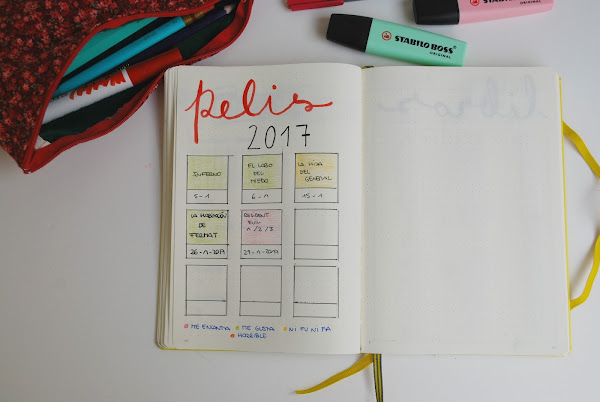 STABILO BOSS
ORIGINAL
pelis
2017
INFERNO
5-1
EL LOBO
DEL
6-1
LA HIJA
DEL
GENERAL
15-1
LA HABITACIÓN
DE
FERMAT
26-1-2017
RESIDENT
EVIL
1/2/3
29-1-2017
ME ENCANTA
ME GUSTA
NI FU NI FA
HORRIBLE
libros